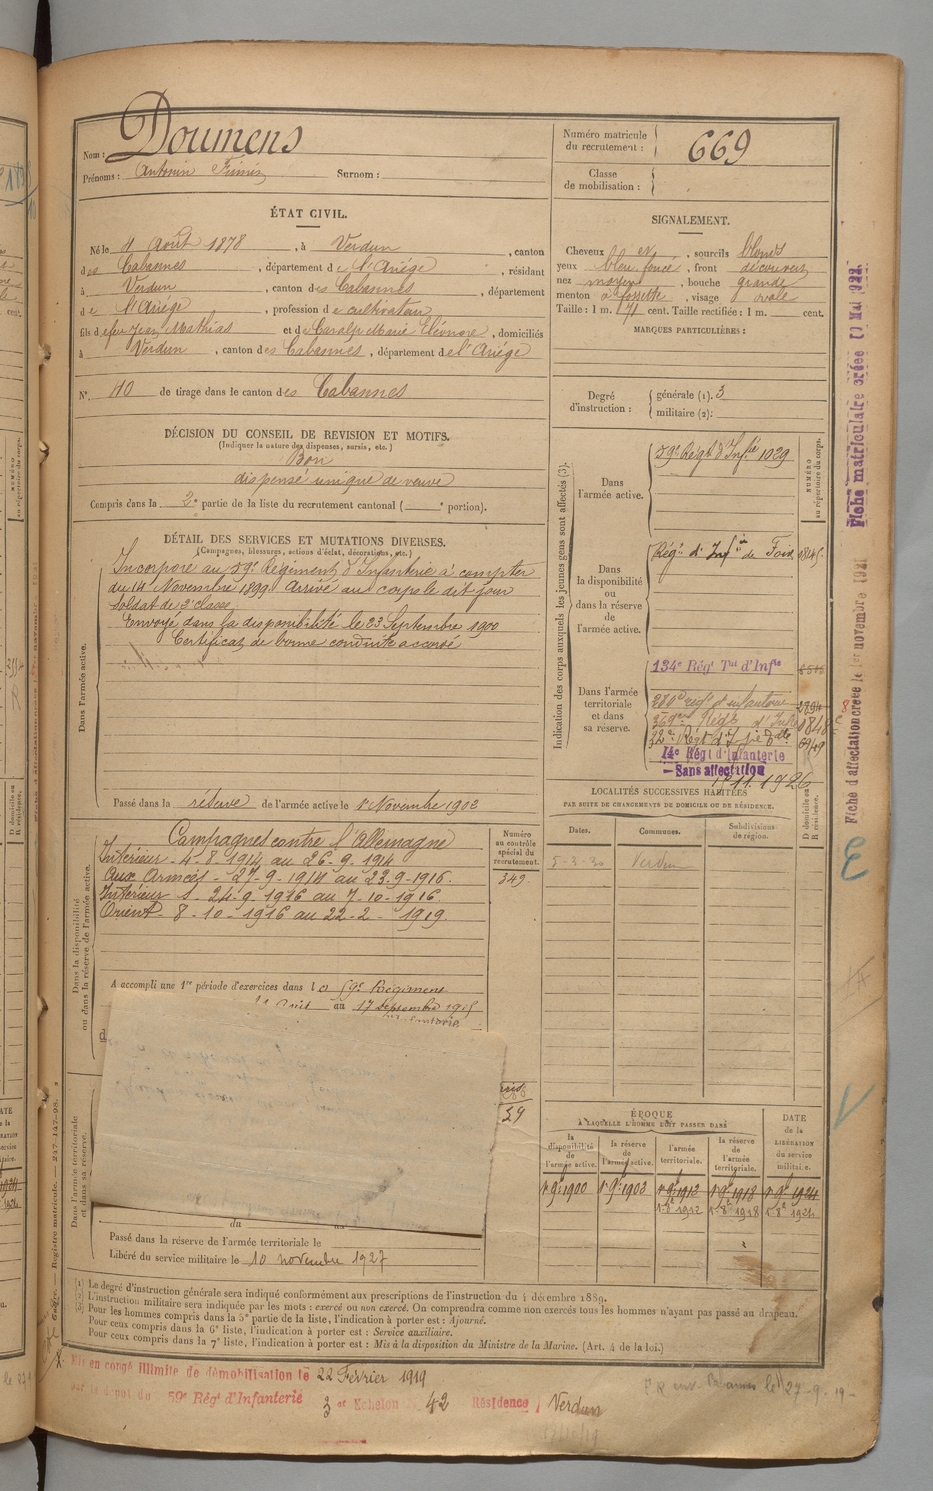 Nom : Doumens
Prénoms : Antonin Surnom :
ÉTAT CIVIL.
Né le 4 Août 1878, à Verdun, canton
des Cabannes, département de l'Ariège, résidant
à Verdun, canton des Cabannes, département
de l'Ariège, profession de cultivateur
fils de feu Jean Mathias et de Caralp Marie Eléonore, domiciliés
à Verdun, canton des Cabannes, département de l'Ariège
N° 40 de tirage dans le canton des Cabannes
DÉCISION DU CONSEIL DE REVISION ET MOTIFS.
(Indiquer la nature des dispenses, sursis, etc.)
Bon
dispensé unique de veuve
Compris dans la 2e partie de la liste du recrutement cantonal ( e portion).
DÉTAIL DES SERVICES ET MUTATIONS DIVERSES.
(Campagnes, blessures, actions d'éclat, décorations, etc.)
Dans l'armée active.
Incorporé au 59e Régiment d'Infanterie à compter
du 14 Novembre 1899. Arrivé au corps le dit jour
Soldat de 2e classe
Envoyé dans la disponibilité le 23 Septembre 1900
Certificat de bonne conduite accordé
Passé dans la réserve de l'armée active le 1er Novembre 1902
Dans la disponibilité
ou dans la réserve de l'armée active.
Campagnes contre l'Allemagne
Intérieur - 4-8-1914 au 26-9-1914
Aux Armées - 27-9-1914 au 23-9-1916.
Intérieur - 24-9-1916 au 7-10-1916.
Orient - 8-10-1916 au 22-2-1919.
Numéro
au contrôle
spécial du
recrutement.
349
A accompli une 1re période d'exercices dans le 59e Régiment
au 17 Septembre
59
Dans l'armée territoriale
et dans sa réserve.
du au
Passé dans la réserve de l'armée territoriale le
Libéré du service militaire le 10 novembre 1927
Numéro matricule
du recrutement : 669
Classe
de mobilisation :
SIGNALEMENT.
Cheveux , sourcils blonds
yeux bleu foncé, front découvert
nez moyen, bouche grande
menton à fossette, visage ovale
Taille : 1 m. 71 cent. Taille rectifiée : 1 m. cent.
MARQUES PARTICULIÈRES :
Degré
d'instruction :
générale (1). 3
militaire (2).
Indication des corps auxquels les jeunes gens sont affectés (3).
NUMÉRO
au répertoire du corps.
Dans
l'armée active.
59e Régt d'Infie 1029
Dans
la disponibilité
ou
dans la réserve
de
l'armée active.
Régt d'Infie de Foix
Dans l'armée
territoriale
et dans
sa réserve.
134e Régt Tal d'Infie
280e régt d'infanterie
14e Régt d'Infanterie
— Sans affectation
LOCALITÉS SUCCESSIVES HABITÉES
PAR SUITE DE CHANGEMENTS DE DOMICILE OU DE RÉSIDENCE.
Dates. Communes. Subdivisions
de région. D domicile ou
R résidence.
5-3-30 Verdun
ÉPOQUE
À LAQUELLE L'HOMME DOIT PASSER DANS
la
disponibilité
de
l'armée active.
la réserve
de
l'armée active.
l'armée
territoriale.
la réserve
de
l'armée
territoriale.
DATE
de la
LIBÉRATION
du service
militaire.
1er 9bre 1900 1er 9bre 1902 1er 9bre 1912 1er 9bre 1918 1er 9bre 1924
1-8e 1912 1-8e 1918 1-8e 1924
Le degré d'instruction générale sera indiqué conformément aux prescriptions de l'instruction du 4 décembre 1889.
L'instruction militaire sera indiquée par les mots : exercé ou non exercé. On comprendra comme non exercés tous les hommes n'ayant pas passé au drapeau.
Pour les hommes compris dans la 5e partie de la liste, l'indication à porter est : Ajourné.
Pour ceux compris dans la 6e liste, l'indication à porter est : Service auxiliaire.
Pour ceux compris dans la 7e liste, l'indication à porter est : Mis à la disposition du Ministre de la Marine. (Art. 4 de la loi.)
Mis en congé illimité de démobilisation le 22 Février 1919
par le dépôt du 59e Régt d'Infanterie
3e Echelon N° 42 Résidence Verdun
27-9-19
Fiche matriculaire créée Mai 1922.
Fiche d'affectation créée le 1er novembre 1921